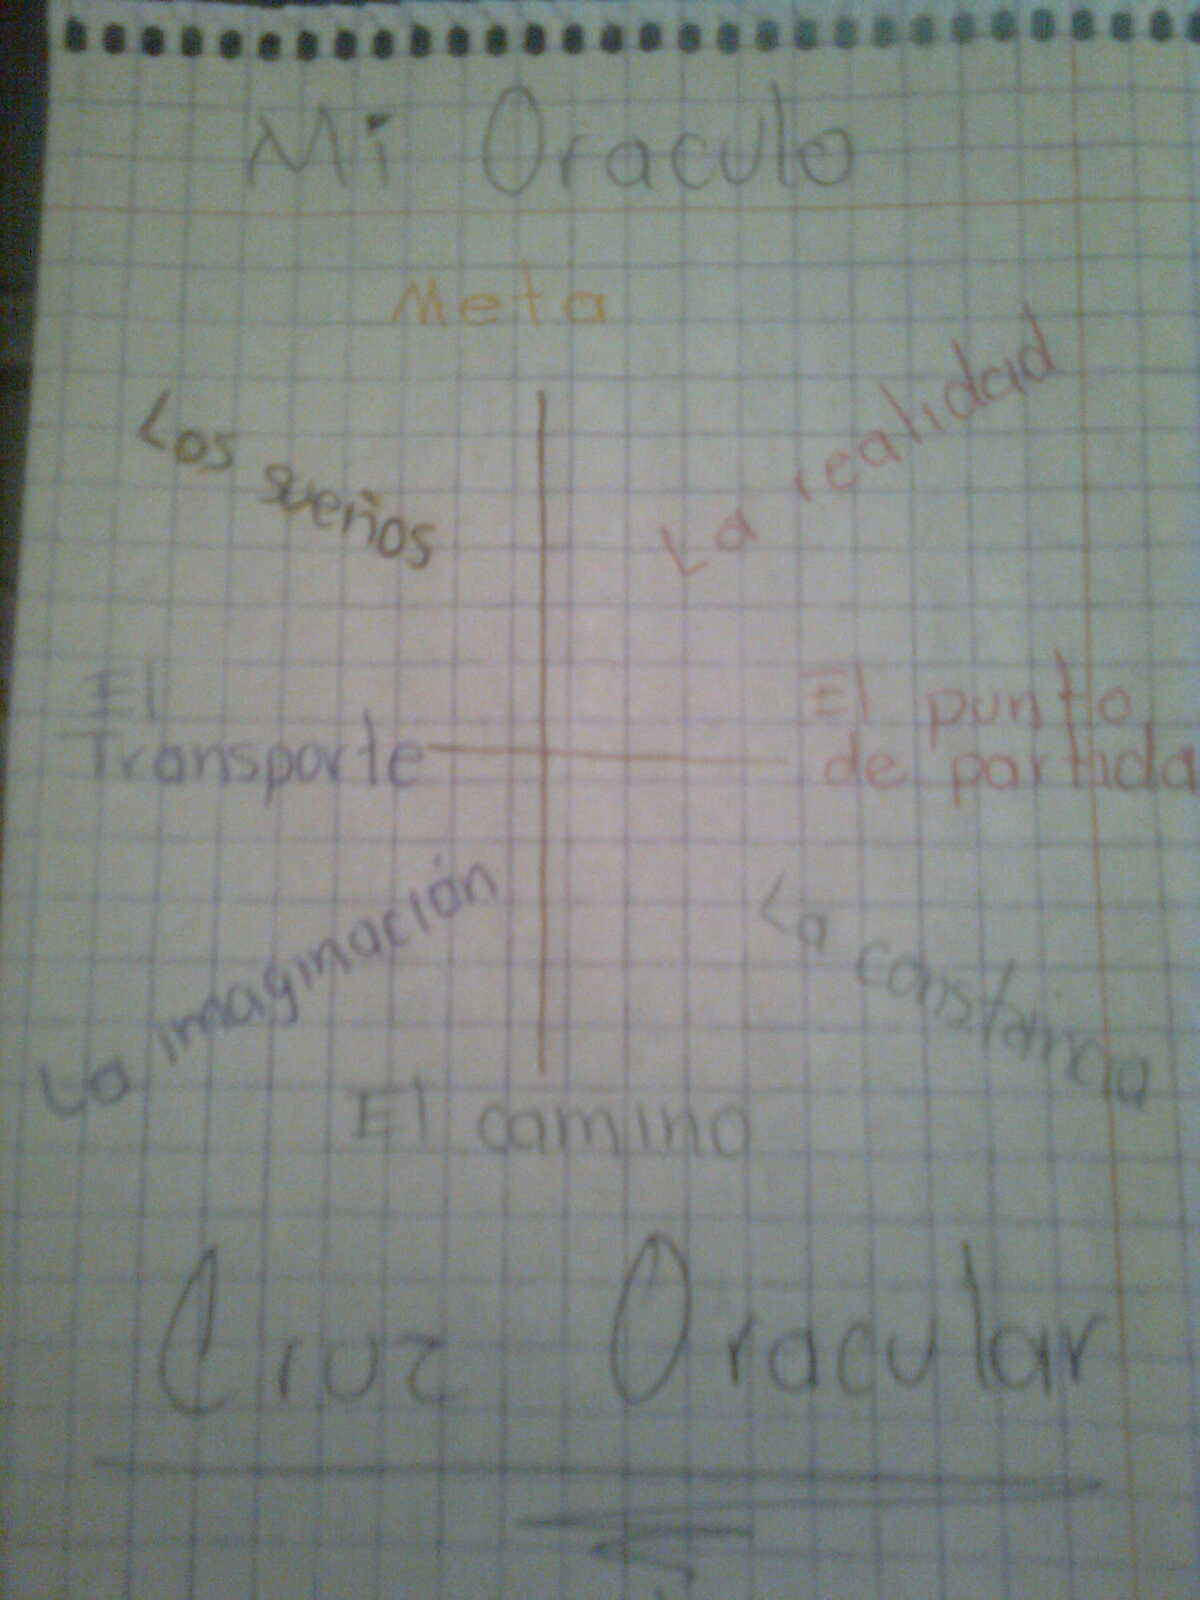 Mi Oraculo
Meta
Los sueños
La realidad
El
Transporte
El punto
de partida
La imaginación
La constancia
El camino
Cruz Oracular